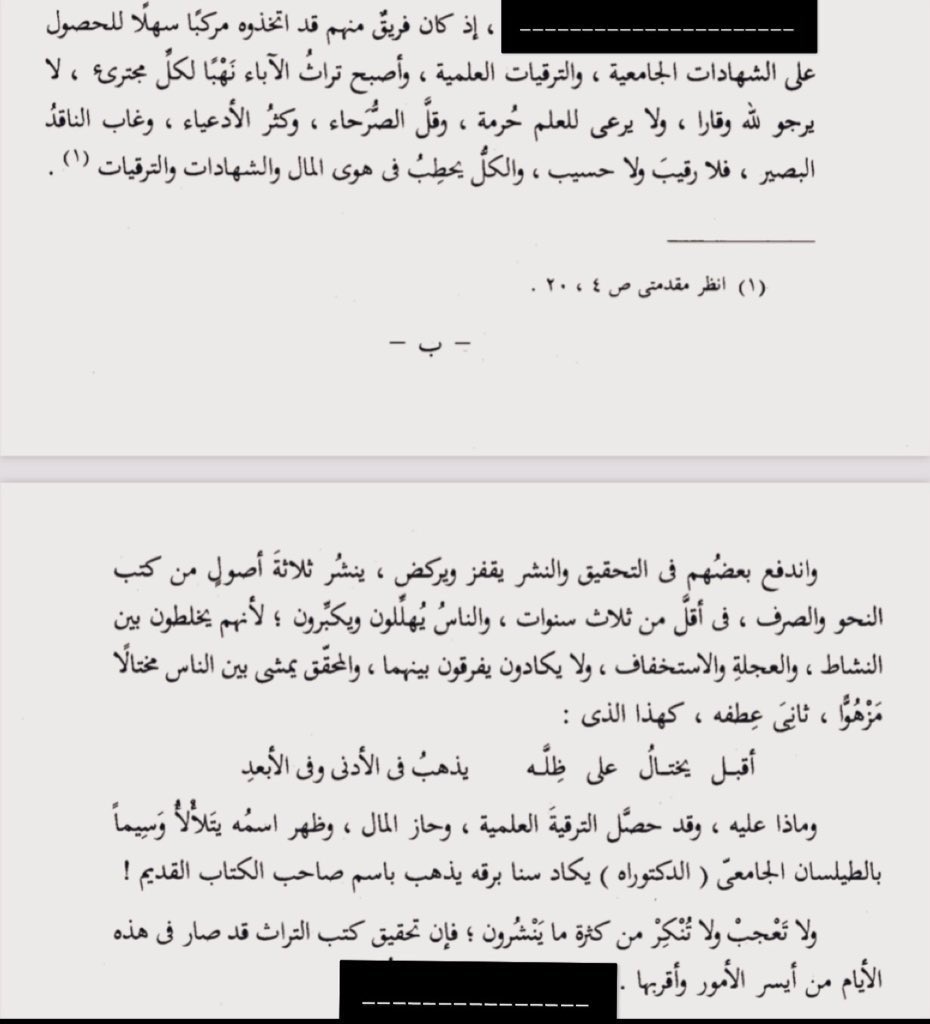 ، إذ كان فريقٌ منهم قد اتخذوه مركبًا سهلًا للحصول
على الشهادات الجامعية ، والترقيات العلمية ، وأصبح تراثُ الآباء نَهْبًا لكلِّ مجترئ ، لا
يرجو لله وقارا ، ولا يرعى للعلم حُرمة ، وقلَّ الصُّرَحاء ، وكثرُ الأدعياء ، وغاب الناقدُ
البصير ، فلا رقيبَ ولا حسيب ، والكلُّ يحطِبُ فى هوى المال والشهادات والترقيات (١) .
(١) انظر مقدمتى ص ٤ ، ٢٠ .
– ب –
واندفع بعضُهم فى التحقيق والنشر يقفز ويركض ، ينشُر ثلاثةَ أصولٍ من كتب
النحو والصرف ، فى أقلَّ من ثلاث سنوات ، والناسُ يُهلِّلون ويكبِّرون ؛ لأنهم يخلطون بين
النشاط ، والعجلةِ والاستخفاف ، ولا يكادون يفرقون بينهما ، والمحقّق يمشى بين الناس مختالًا
مَزْهُوًّا ، ثانِىَ عِطفه ، كهذا الذى :
أقبـل يختـالُ على ظِلَّـه يذهبُ فى الأدنى وفى الأبعدِ
وماذا عليه ، وقد حصَّل الترقيةَ العلمية ، وحاز المال ، وظهر اسمُه يتَلألأُ وَسِيماً
بالطيلسان الجامعىّ ( الدكتوراه ) يكاد سنا برقه يذهب باسم صاحب الكتاب القديم !
ولا تَعْجبْ ولا تُنْكِرْ من كثرة ما يَنْشُرون ؛ فإن تحقيق كتب التراث قد صار فى هذه
الأيام من أيسر الأمور وأقربها .